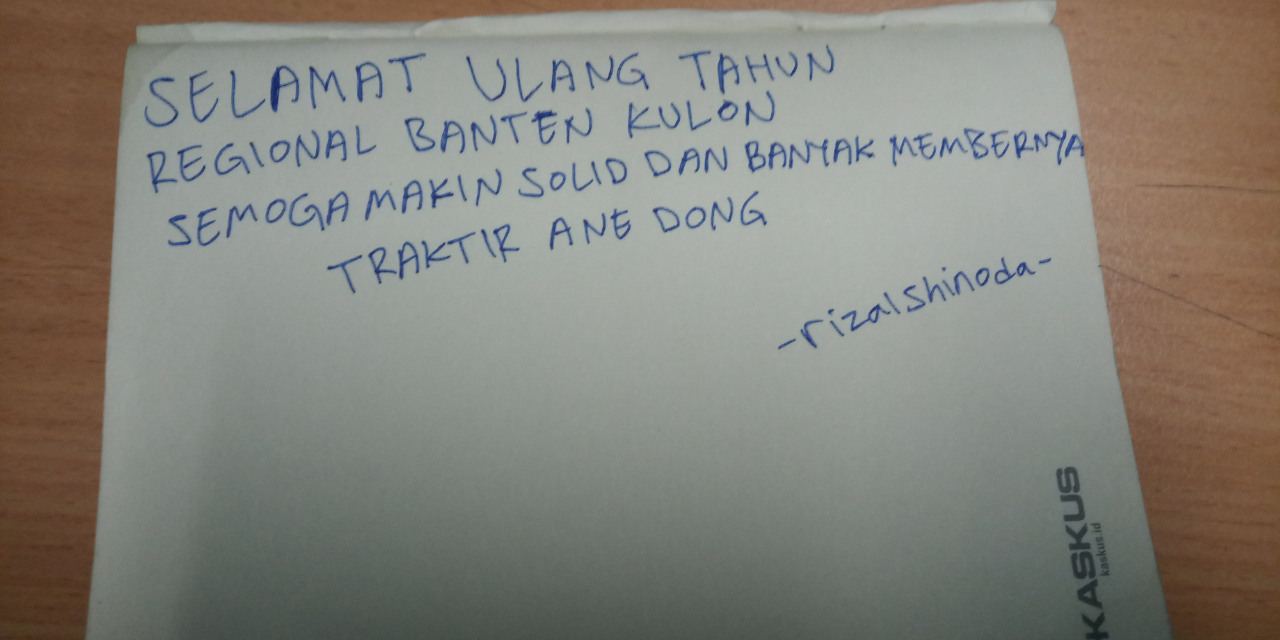 SELAMAT ULANG TAHUN
REGIONAL BANTEN KULON
SEMOGA MAKIN SOLID DAN BANYAK MEMBERNYA
TRAKTIR ANE DONG
-rizalshinoda-
KASKUS
kaskus.id